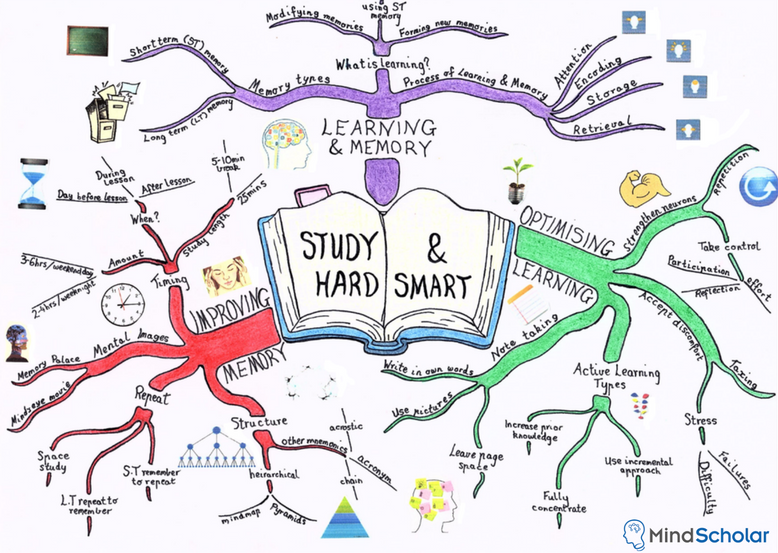 using ST
memory
Modifying memories
Forming new memories
What is learning?
Short term (ST) memory
Memory types
Long term (LT) memory
Process of Learning & Memory
Attention
Encoding
Storage
Retrieval
LEARNING
& MEMORY
STUDY
HARD
&
SMART
During
lesson
After lesson
Day before lesson
When?
5-10min
break
25mins
Study length
Amount
3-6hrs/weekendday
2-4hrs/weeknight
Timing
IMPROVING
MEMORY
Mental Images
Memory Palace
Minds eye movie
Repeat
Space
study
L.T repeat to
remember
S.T remember
to repeat
Structure
other mnemonics
acrostic
acronym
chain
heirarchical
mindmap
Pyramids
OPTIMISING
LEARNING
Strengthen neurons
Repetition
Take control
Participation
Reflection
effort
Accept discomfort
Taxing
Stress
Failures
Difficulty
Note taking
Write in own words
Use pictures
Leave page
space
Active Learning
Types
Increase prior
knowledge
Fully
concentrate
Use incremental
approach
MindScholar